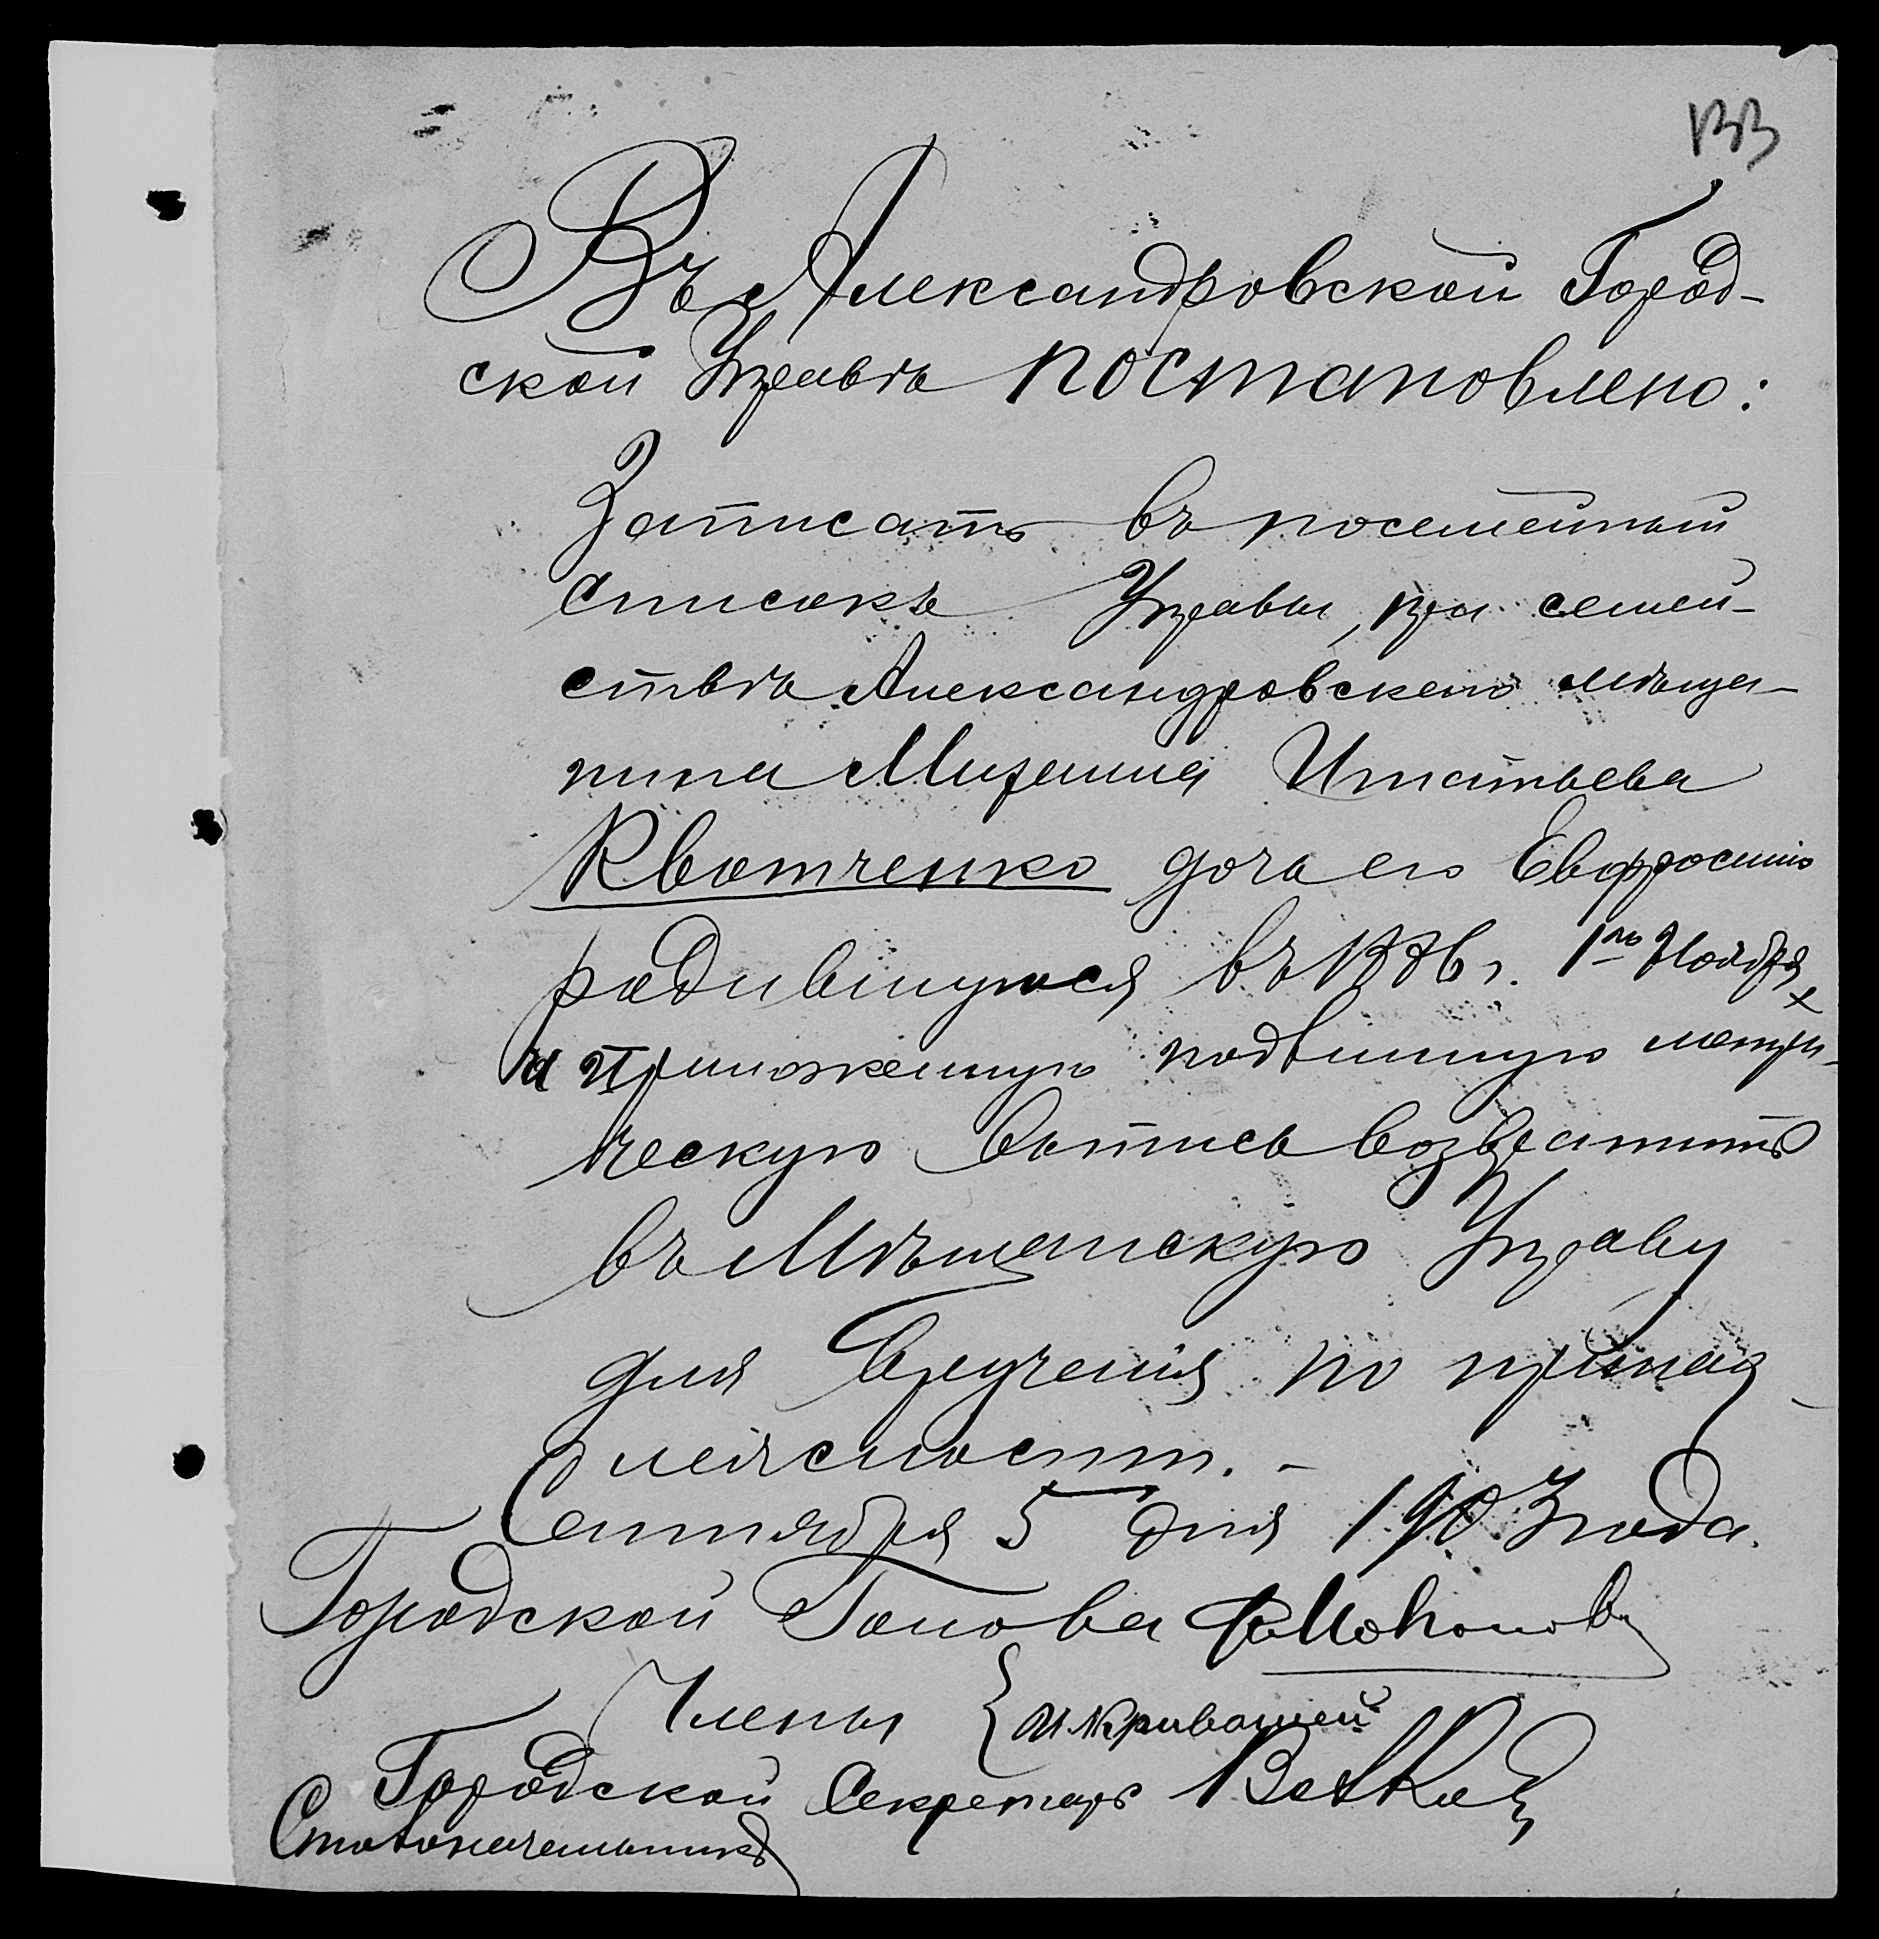 133
Въ Александровской Город-
ской Управѣ постановлено:
Записать въ посемейный
списокъ Управы, при семей-
ствѣ Александровскаго мѣща-
нина Михаила Игнатьева
Квотченко дочь его Евфросинію
родившуюся въ г. 1го Ноября
и приложенную подлинную метри-
ческую выпись возвратить
въ Мѣщанскую Управу
для врученія по принад-
лежности. –
Сентября 5 дня 1903 года.
Городской Голова
Члены
Городской Секретарь
Столоначальникъ